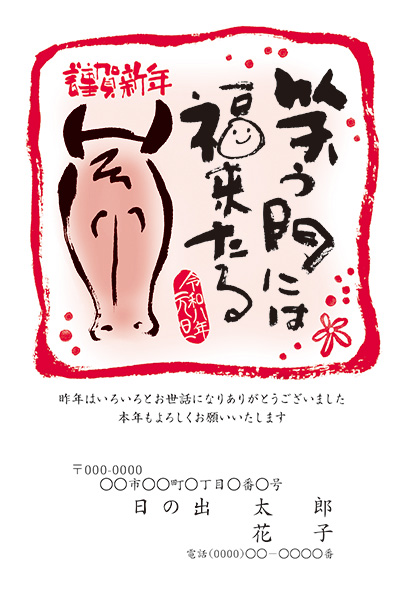 謹賀新年
笑う門には
福来たる
令和八年
元旦
昨年はいろいろとお世話になりありがとうございました
本年もよろしくお願いいたします
〒000-0000
〇〇市〇〇町〇丁目〇番〇号
日の出 太郎
花子
電話(0000)〇〇－〇〇〇〇番